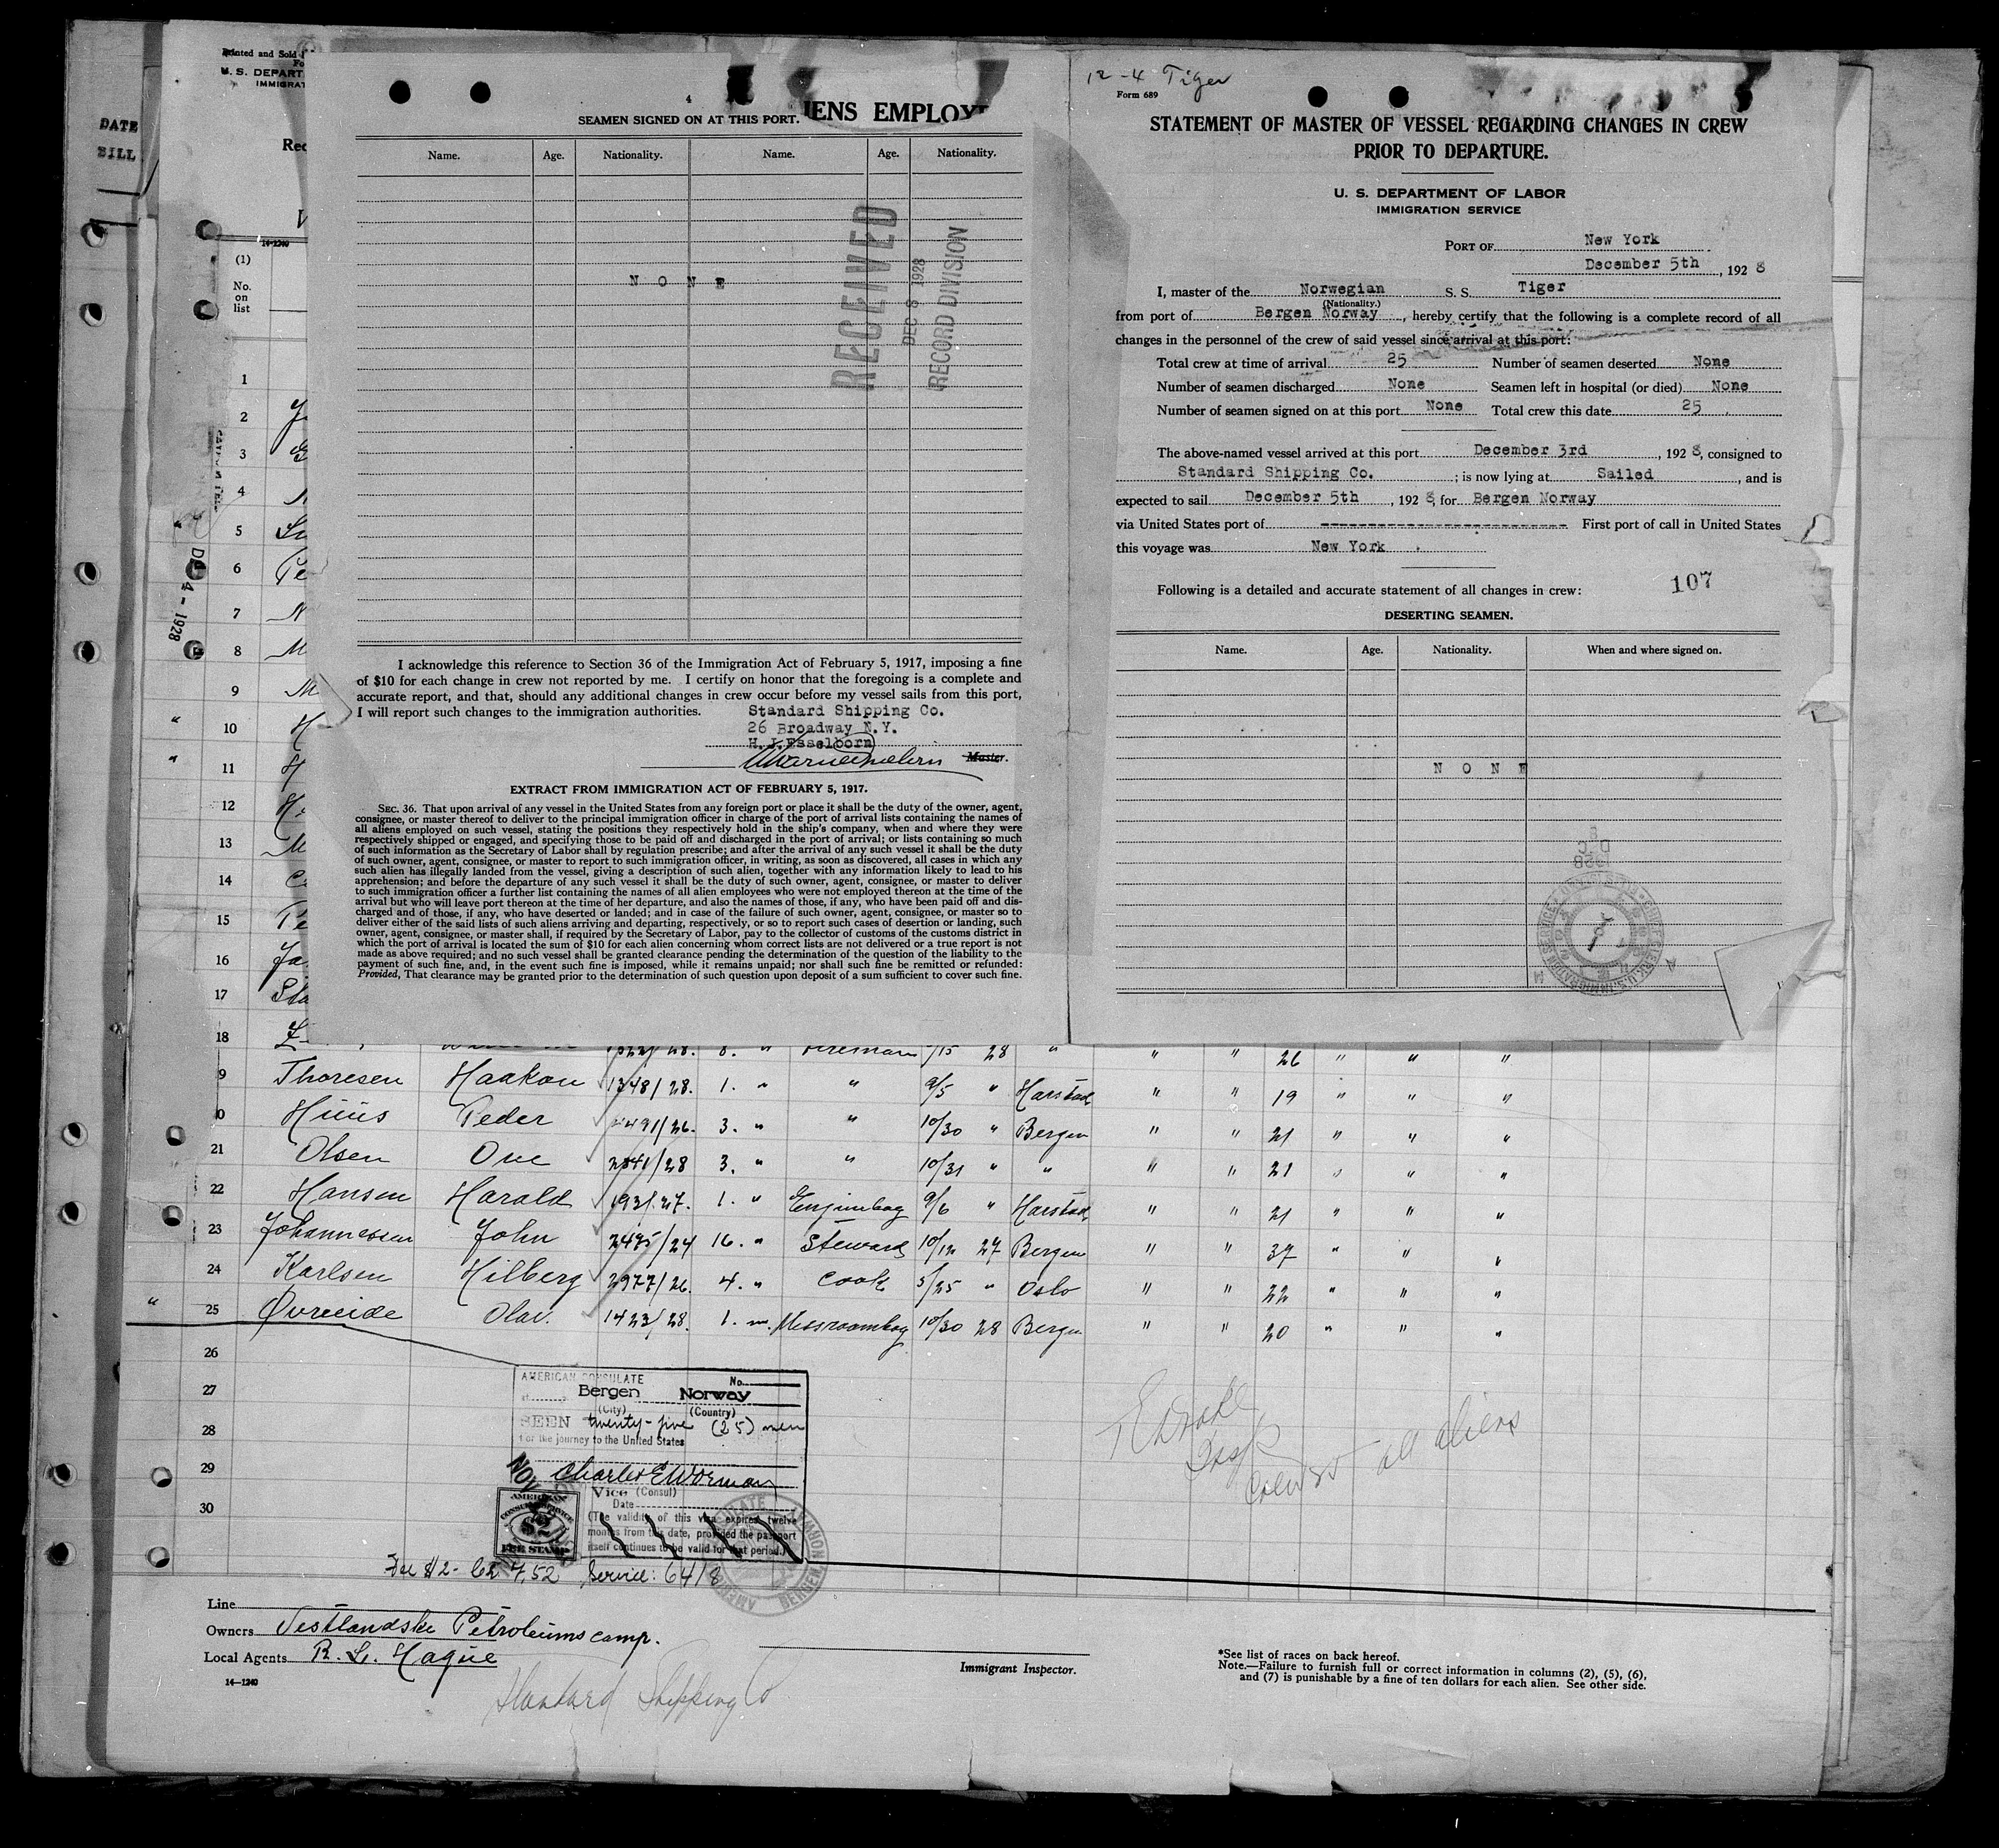 DATE
BILL
Printed and Sold
U. S. DEPART
IMMIGRAT
Rec
14-1240
(1)
No.
on
list
1
2
3
4
5
6
7
8
9
10
11
12
13
14
15
16
17
18
DEC 4 - 1928
4
SEAMEN SIGNED ON AT THIS PORT.
IENS EMPLOY
Name. Age. Nationality. Name. Age. Nationality.
NONE
RECEIVED
DEC 8 1928
RECORD DIVISION
I acknowledge this reference to Section 36 of the Immigration Act of February 5, 1917, imposing a fine
of $10 for each change in crew not reported by me. I certify on honor that the foregoing is a complete and
accurate report, and that, should any additional changes in crew occur before my vessel sails from this port,
I will report such changes to the immigration authorities. Standard Shipping Co.
26 Broadway N.Y.
H.J.Esselborn
Master.
EXTRACT FROM IMMIGRATION ACT OF FEBRUARY 5, 1917.
SEC. 36. That upon arrival of any vessel in the United States from any foreign port or place it shall be the duty of the owner, agent,
consignee, or master thereof to deliver to the principal immigration officer in charge of the port of arrival lists containing the names of
all aliens employed on such vessel, stating the positions they respectively hold in the ship's company, when and where they were
respectively shipped or engaged, and specifying those to be paid off and discharged in the port of arrival; or lists containing so much
of such information as the Secretary of Labor shall by regulation prescribe; and after the arrival of any such vessel it shall be the duty
of such owner, agent, consignee, or master to report to such immigration officer, in writing, as soon as discovered, all cases in which any
such alien has illegally landed from the vessel, giving a description of such alien, together with any information likely to lead to his
apprehension; and before the departure of any such vessel it shall be the duty of such owner, agent, consignee, or master to deliver
to such immigration officer a further list containing the names of all alien employees who were not employed thereon at the time of the
arrival but who will leave port thereon at the time of her departure, and also the names of those, if any, who have been paid off and dis-
charged and of those, if any, who have deserted or landed; and in case of the failure of such owner, agent, consignee, or master so to
deliver either of the said lists of such aliens arriving and departing, respectively, or so to report such cases of desertion or landing, such
owner, agent, consignee, or master shall, if required by the Secretary of Labor, pay to the collector of customs of the customs district in
which the port of arrival is located the sum of $10 for each alien concerning whom correct lists are not delivered or a true report is not
made as above required; and no such vessel shall be granted clearance pending the determination of the question of the liability to the
payment of such fine, and, in the event such fine is imposed, while it remains unpaid; nor shall such fine be remitted or refunded:
Provided, That clearance may be granted prior to the determination of such question upon deposit of a sum sufficient to cover such fine.
12-4 Tiger
Form 689
STATEMENT OF MASTER OF VESSEL REGARDING CHANGES IN CREW
PRIOR TO DEPARTURE.
U. S. DEPARTMENT OF LABOR
IMMIGRATION SERVICE
PORT OF New York
December 5th, 1928
I, master of the Norwegian S. S. Tiger
(Nationality.)
from port of Bergen Norway, hereby certify that the following is a complete record of all
changes in the personnel of the crew of said vessel since arrival at this port:
Total crew at time of arrival 25 Number of seamen deserted None
Number of seamen discharged None Seamen left in hospital (or died) None
Number of seamen signed on at this port None Total crew this date 25
The above-named vessel arrived at this port December 3rd, 1928, consigned to
Standard Shipping Co. ; is now lying at Sailed, and is
expected to sail December 5th, 1928, for Bergen Norway
via United States port of -------------------------- First port of call in United States
this voyage was New York.
Following is a detailed and accurate statement of all changes in crew: 107
DESERTING SEAMEN.
Name. Age. Nationality. When and where signed on.
NONE
1928
DEC
18 1322/28. 8. " Fireman /15 28 " " " 26 " " "
9 Thoresen Haakon 1348/28. 1. " " 9/5 " Harstad " " 19 " " "
0 Huus Peder 491/26. 3. " " 10/30 " Bergen " " 21 " " "
21 Olsen Ove 2841/28 3. " " 10/31 " " " " 21 " " "
22 Hansen Harald 193/27. 1. " Enginboy 9/6 " Harstad " " 21 " " "
23 Johannessen John 2495/24 16. " Steward 10/12 27 Bergen " " 37 " " "
24 Karlsen Hilberg 2977/26. 4. " Cook 5/25 " Oslo " " 22 " " "
" 25 Øvreeide Olav. 1423/28. 1. m. Messroomboy 10/30 28 Bergen " " 20 " " "
26
27
28
29
30
AMERICAN CONSULATE No.
at Bergen Norway
(City) (Country)
SEEN twenty-five (25) men
For the journey to the United States
Charles E Worman
Vice (Consul)
Date
(The validity of this visa expires twelve
months from this date, provided the passport
itself continues to be valid for that period.)
AMERICAN
CONSULAR SERVICE
$2
FEE STAMP
Fee $2- Cr 7,52 Service: 6418
all aliens
Line
Owners Vestlandske Petroleumscomp.
Local Agents R. L. Hague
14-1240
Standard Shipping Co
Immigrant Inspector.
*See list of races on back hereof.
Note.—Failure to furnish full or correct information in columns (2), (5), (6),
and (7) is punishable by a fine of ten dollars for each alien. See other side.